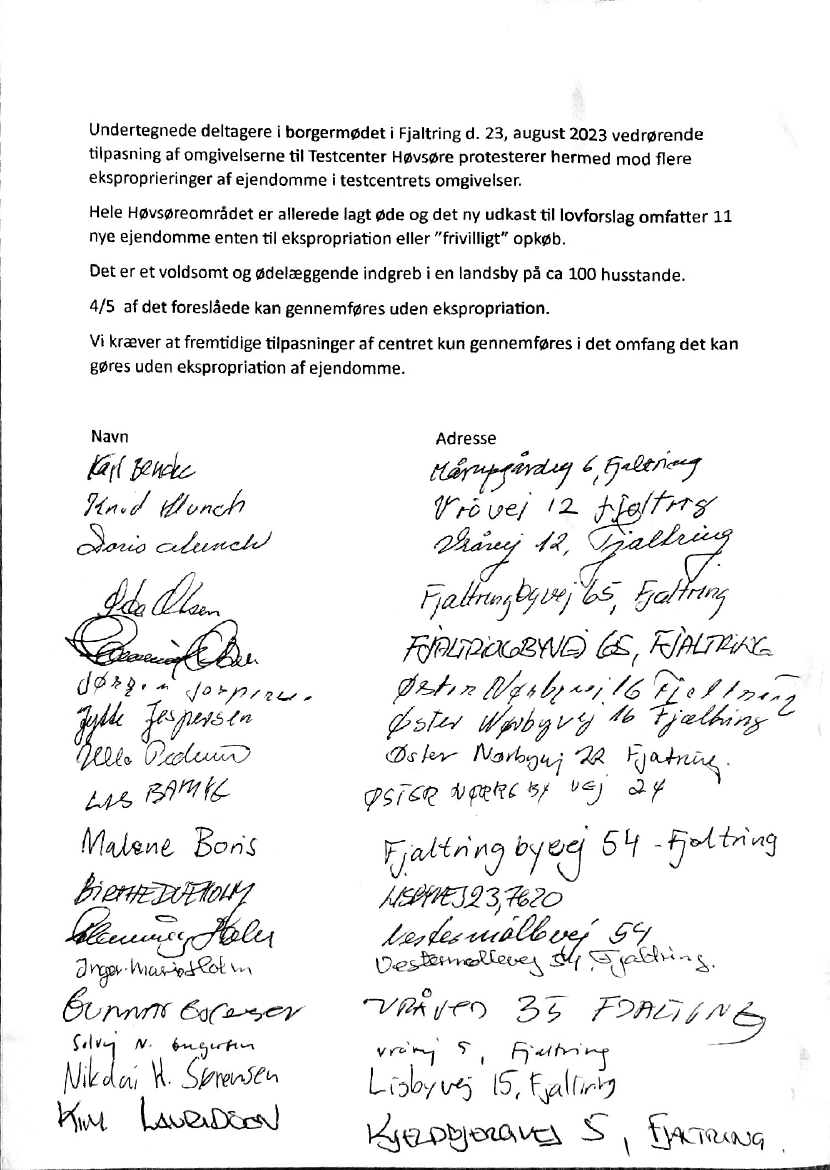 Undertegnede deltagere i borgermødet i Fjaltring d. 23, august 2023 vedrørende
tilpasning af omgivelserne til Testcenter Høvsøre protesterer hermed mod flere
eksproprieringer af ejendomme i testcentrets omgivelser.
Hele Høvsøreområdet er allerede lagt øde og det ny udkast til lovforslag omfatter 11
nye ejendomme enten til ekspropriation eller "frivilligt" opkøb.
Det er et voldsomt og ødelæggende indgreb i en landsby på ca 100 husstande.
4/5 af det foreslåede kan gennemføres uden ekspropriation.
Vi kræver at fremtidige tilpasninger af centret kun gennemføres i det omfang det kan
gøres uden ekspropriation af ejendomme.
Navn Adresse
6, Fjaltring
Knud Munch Vråvej 12
Doris Munch Vråvej 12, Fjaltring
Olsen Fjaltringbyvej 65, Fjaltring
65, FJALTRING
Øster Nørbyvej 16
Jytte Jespersen Øster Nørbyvej 16 Fjaltring
Øster Nørbyvej 22
ØSTER VEJ 24
Malene Boris Fjaltringbyvej 54 - Fjaltring
BIRTHE DUEHOLM 23, 7620
Flemming Holm Vestermøllevej 54
Inger-Marie Holm Vestermøllevej 54, Fjaltring.
35
Solvej N. 5, Fjaltring
Nikolai H. Sørensen Lisbyvej 15, Fjaltring
KIM LAURIDSEN 5, FJALTRING.